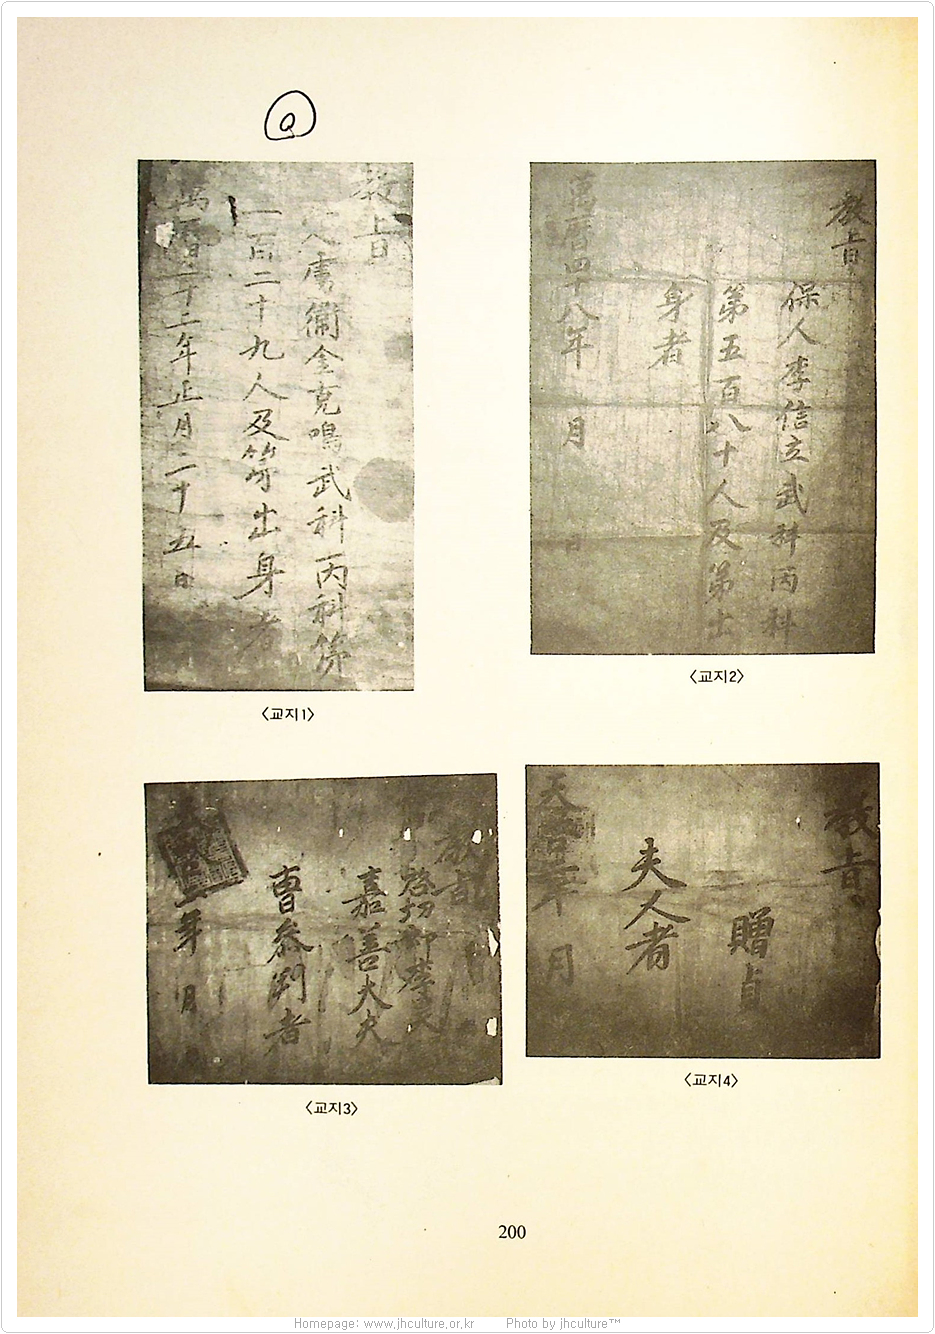 Q
教旨
定虜衛金克鳴武科丙科第
一百二十九人及第出身者
萬曆二十二年正月二十五日
<교지1>
教旨
保人李信立武科丙科
第五百八十人及第出
身者
萬曆四十八年 月 日
<교지2>
教旨
嘉善大夫
曹參判者
年 月
<교지3>
教旨
贈貞
夫人者
天 年 月
<교지4>
200
Homepage: www.jhculture.or.kr Photo by jhculture™